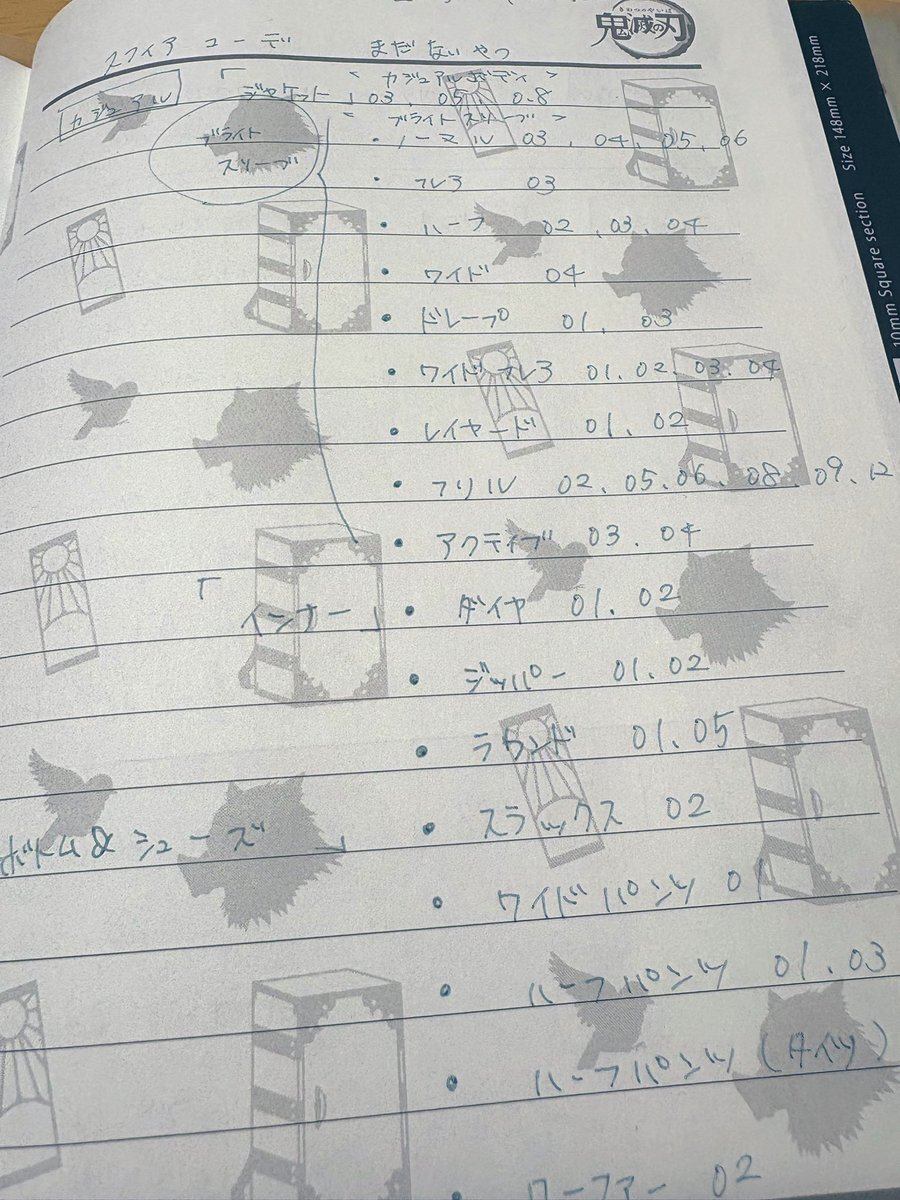 きめつのやいば
鬼滅の刃
スフィア コーデ まだ ない やつ
カジュアル 「ジャケット」 <カジュアルボディ>
03, 05, 08
<ブライト スリーブ>
ブライト スリーブ
・ノーマル 03, 04, 05, 06
・フレア 03
・ハーフ 02, 03, 04
・ワイド 04
・ドレープ 01, 03
・ワイドフレア 01, 02, 03, 04
・レイヤード 01, 02
・フリル 02, 05, 06, 08, 09, 12
・アクティブ 03, 04
「インナー」 ・ダイヤ 01, 02
・ジッパー 01, 02
・ラウンド 01, 05
ボトム & シューズ」 ・スラックス 02
・ワイドパンツ 01
・ハーフパンツ 01, 03
・ハーフパンツ (タイツ)
ローファー 02
10mm Square section Size 148mm × 218mm